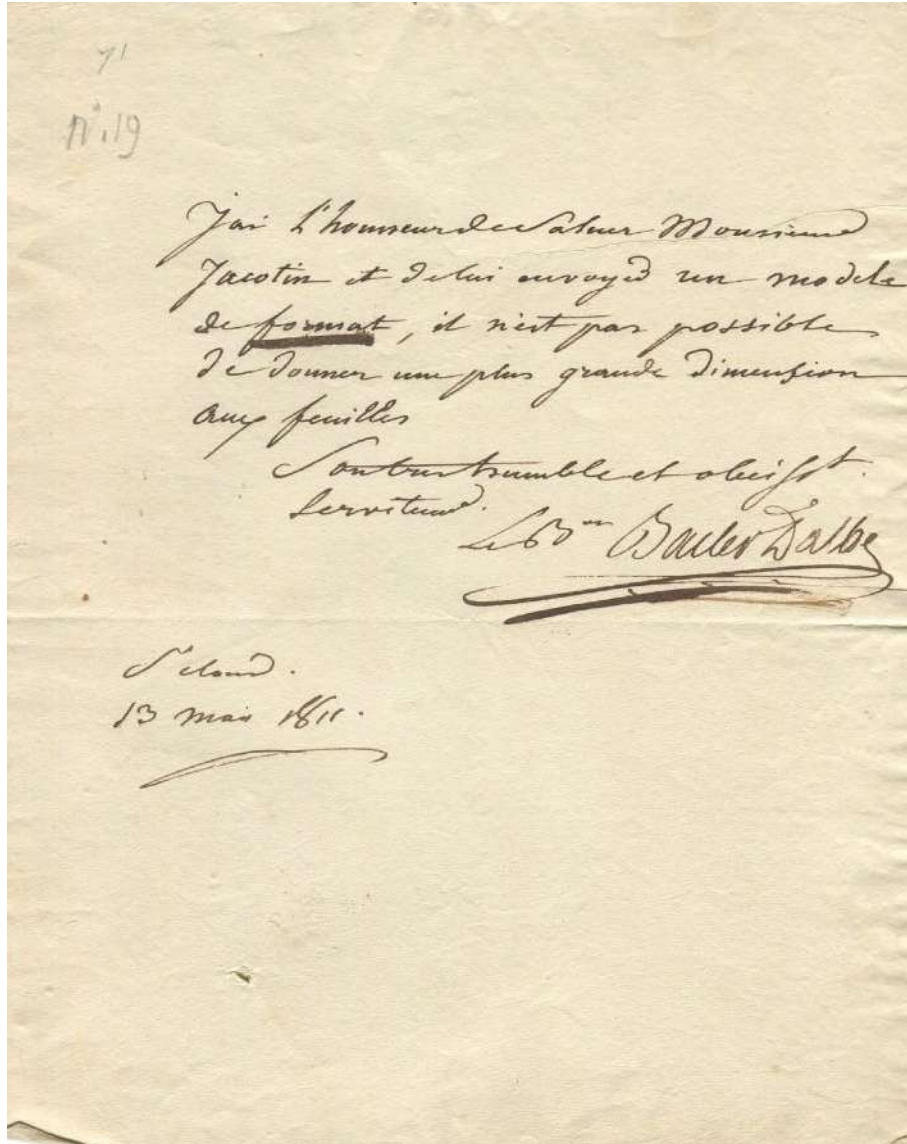 N° 19
J'ai l'honneur de saluer Monsieur
Jacotin et de lui envoyer un modele
de format, il n'est pas possible
de donner une plus grande dimension
aux feuilles
Son tres humble et obeisst.
Serviteur.
Le Bon Bacler Dalbe
St cloud.
13 mai 1811.